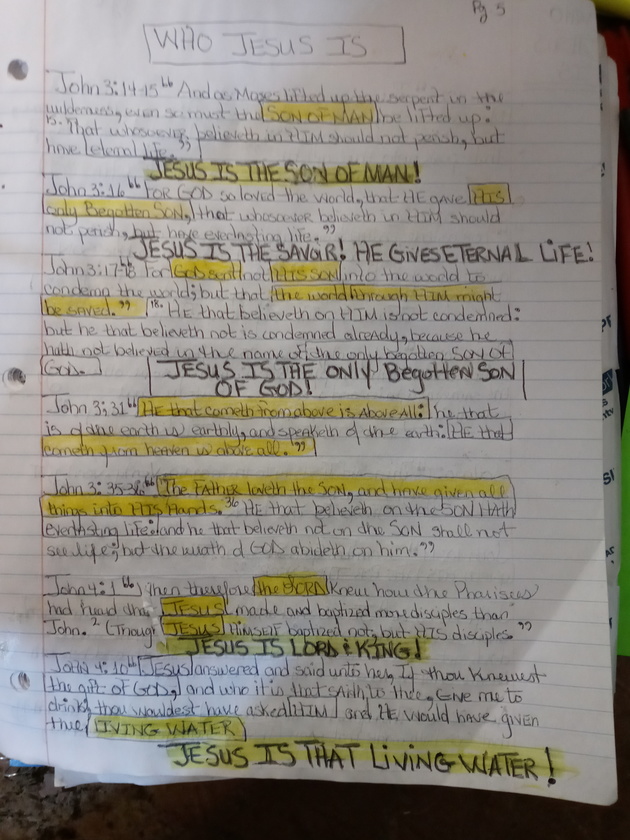 Pg 5
WHO JESUS IS
John 3:14-15 “ And as Moses lifted up the serpent in the
wilderness, even so must the SON OF MAN be lifted up:
15. That whosoever believeth in HIM should not perish, but
have eternal life. ”
JESUS IS THE SON OF MAN!
John 3:16 “ FOR GOD so loved the world, that HE gave HIS
only Begotten SON, that whosoever believeth in HIM should
not perish, but have everlasting life. ”
JESUS IS THE SAVOIR! HE GIVES ETERNAL LIFE!
John 3:17-18 For GOD sent not HIS SON into the world to
condemn the world; but that the world through HIM might
be saved. ” 18. HE that believeth on HIM is not condemned:
but he that believeth not is condemned already, because he
hath not believed in the name of the only begotten SON OF
GOD.
JESUS IS THE ONLY Begotten SON
OF GOD!
John 3:31 “ HE that cometh from above is ABOVE ALL: he that
is of the earth is earthly, and speaketh of the earth: HE that
cometh from heaven is above all. ”
John 3:35-36 “ The FATHER loveth the SON, and have given all
things into HIS Hands. 36 HE that believeth on the SON HATH
everlasting life: and he that believeth not on the SON shall not
see life; but the wrath of GOD abideth on him. ”
John 4:1 “ Then therefore the LORD knew how the Pharisees
had heard that JESUS made and baptized more disciples than
John. 2 (Though JESUS HIMSELF baptized not, but HIS disciples. ”
JESUS IS LORD & KING!
John 4:10 “ JESUS answered and said unto her, If thou Knewest
the gift of GOD, and who it is that saith to thee, GIVE me to
drink; thou wouldest have asked HIM and HE would have given
thee LIVING WATER
JESUS IS THAT LIVING WATER!